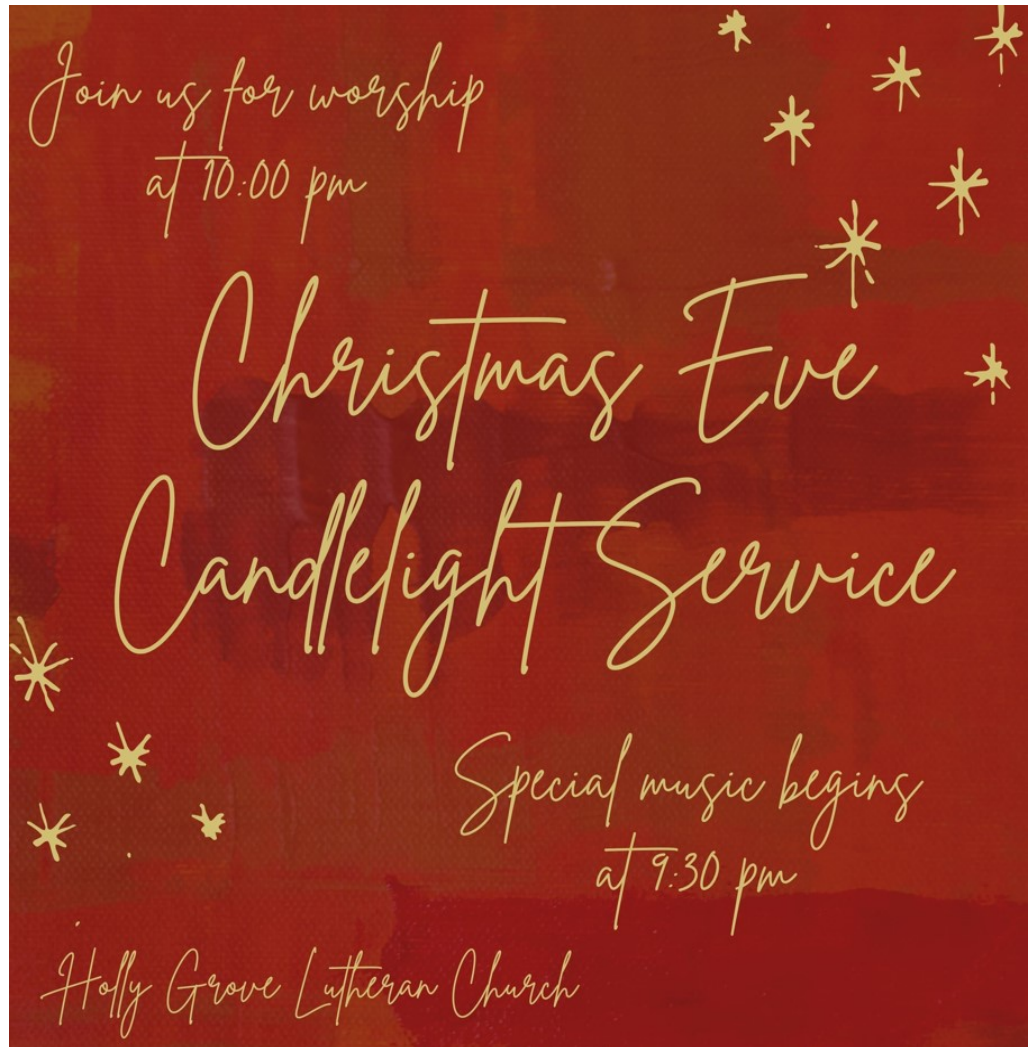 Join us for worship
at 10:00 pm
Christmas Eve
Candlelight Service
Special music begins
at 9:30 pm
Holly Grove Lutheran Church